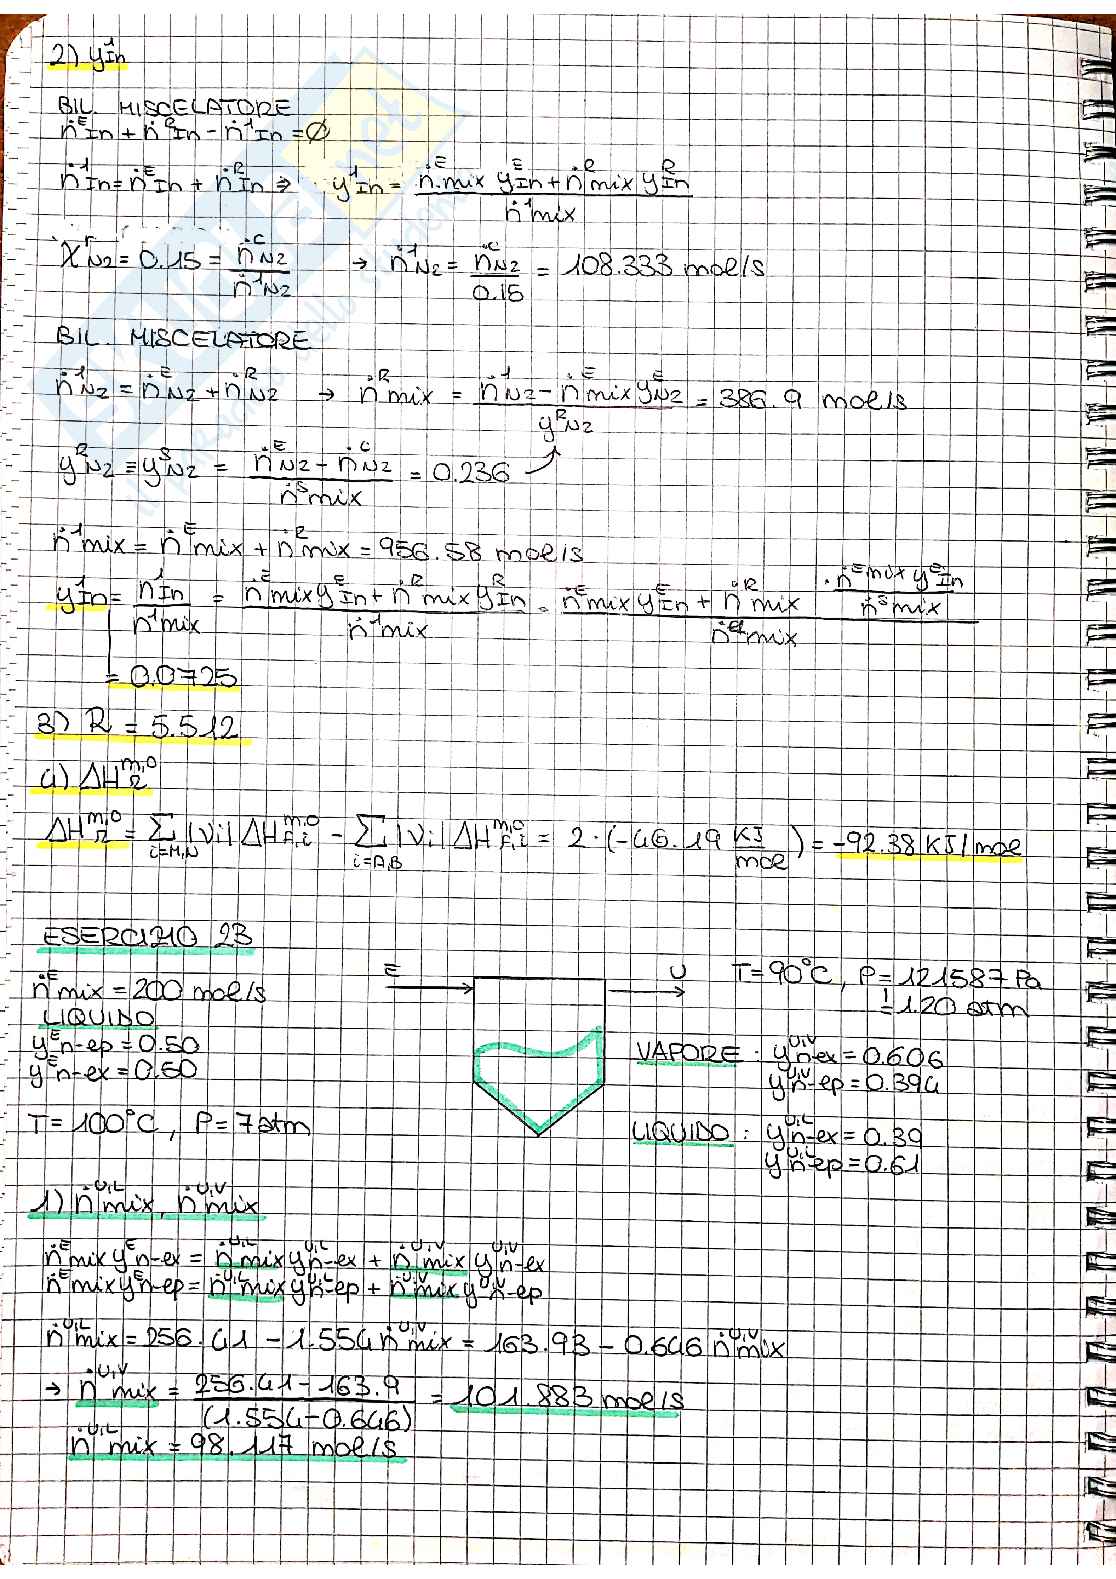 2) y¹In
BIL. MISCELATORE
ṅᴱIn + ṅᴿIn - ṅ¹In = Ø
ṅ¹In = ṅᴱIn + ṅᴿIn ⇒ y¹In = (ṅᴱmix yᴱIn + ṅᴿmix yᴿIn) / ṅ¹mix
χʳN2 = 0.15 = ṅᶜN2 / ṅ¹N2 → ṅ¹N2 = ṅᶜN2 / 0.15 = 108.333 mol/s
BIL. MISCELATORE
ṅ¹N2 = ṅᴱN2 + ṅᴿN2 → ṅᴿmix = (ṅ¹N2 - ṅᴱmix yᴱN2) / yᴿN2 = 386.9 mol/s
yᴿN2 = yˢN2 = (ṅᴱN2 - ṅᶜN2) / ṅˢmix = 0.236
ṅ¹mix = ṅᴱmix + ṅᴿmix = 956.58 mol/s
y¹In = ṅ¹In / ṅ¹mix = (ṅᴱmix yᴱIn + ṅᴿmix yᴿIn) / ṅ¹mix = (ṅᴱmix yᴱIn + ṅᴿmix · (ṅᴱmix yᴱIn / ṅˢmix)) / ṅ¹mix
= 0.0725
3) R = 5.512
4) ΔHᵐ,⁰R
ΔHᵐ,⁰R = Σ i=M,N |νi| ΔHᵐ,⁰F,i - Σ i=A,B |νi| ΔHᵐ,⁰F,i = 2·(-46.19 KJ/mol) = -92.38 KJ/mol
ESERCIZIO 2B
ṅᴱmix = 200 mol/s
LIQUIDO
yᴱn-ep = 0.50
yᴱn-ex = 0.50
T = 100°C, P = 7 atm
E
U
T = 90°C, P = 121587 Pa
= 1.20 atm
VAPORE: yᵁ,ⱽn-ex = 0.606
yᵁ,ⱽn-ep = 0.394
LIQUIDO: yᵁ,ᴸn-ex = 0.39
yᵁ,ᴸn-ep = 0.61
1) ṅᵁ,ᴸmix, ṅᵁ,ⱽmix
ṅᴱmix yᴱn-ex = ṅᵁ,ᴸmix yᵁ,ᴸn-ex + ṅᵁ,ⱽmix yᵁ,ⱽn-ex
ṅᴱmix yᴱn-ep = ṅᵁ,ᴸmix yᵁ,ᴸn-ep + ṅᵁ,ⱽmix yᵁ,ⱽn-ep
ṅᵁ,ᴸmix = 256.41 - 1.554 ṅᵁ,ⱽmix = 163.93 - 0.646 ṅᵁ,ⱽmix
→ ṅᵁ,ⱽmix = (256.41 - 163.9) / (1.554 - 0.646) = 101.883 mol/s
ṅᵁ,ᴸmix = 98.117 mol/s